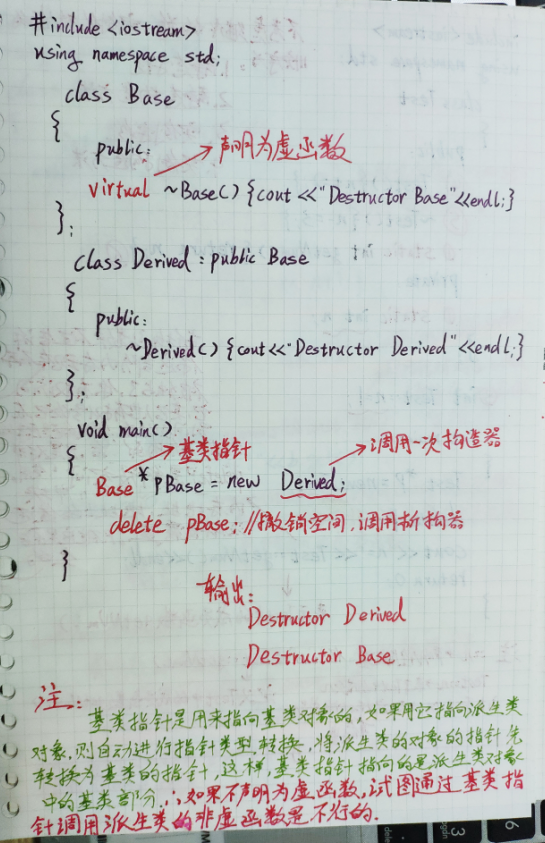 #include <iostream>
using namespace std;
class Base
{
public:
声明为虚函数
virtual ~Base() {cout <<"Destructor Base"<<endl;}
};
class Derived : public Base
{
public:
~Derived() {cout<<"Destructor Derived"<<endl;}
};
void main()
{
基类指针 调用一次构造器
Base * pBase = new Derived;
delete pBase; //撤销空间,调用析构器
}
输出:
Destructor Derived
Destructor Base
注:
基类指针是用来指向基类对象的,如果用它指向派生类
对象,则自动进行指针类型转换,将派生类的对象的指针先
转换为基类的指针,这样,基类指针指向的是派生类对象
中的基类部分,∴如果不声明为虚函数,试图通过基类指
针调用派生类的非虚函数是不行的.